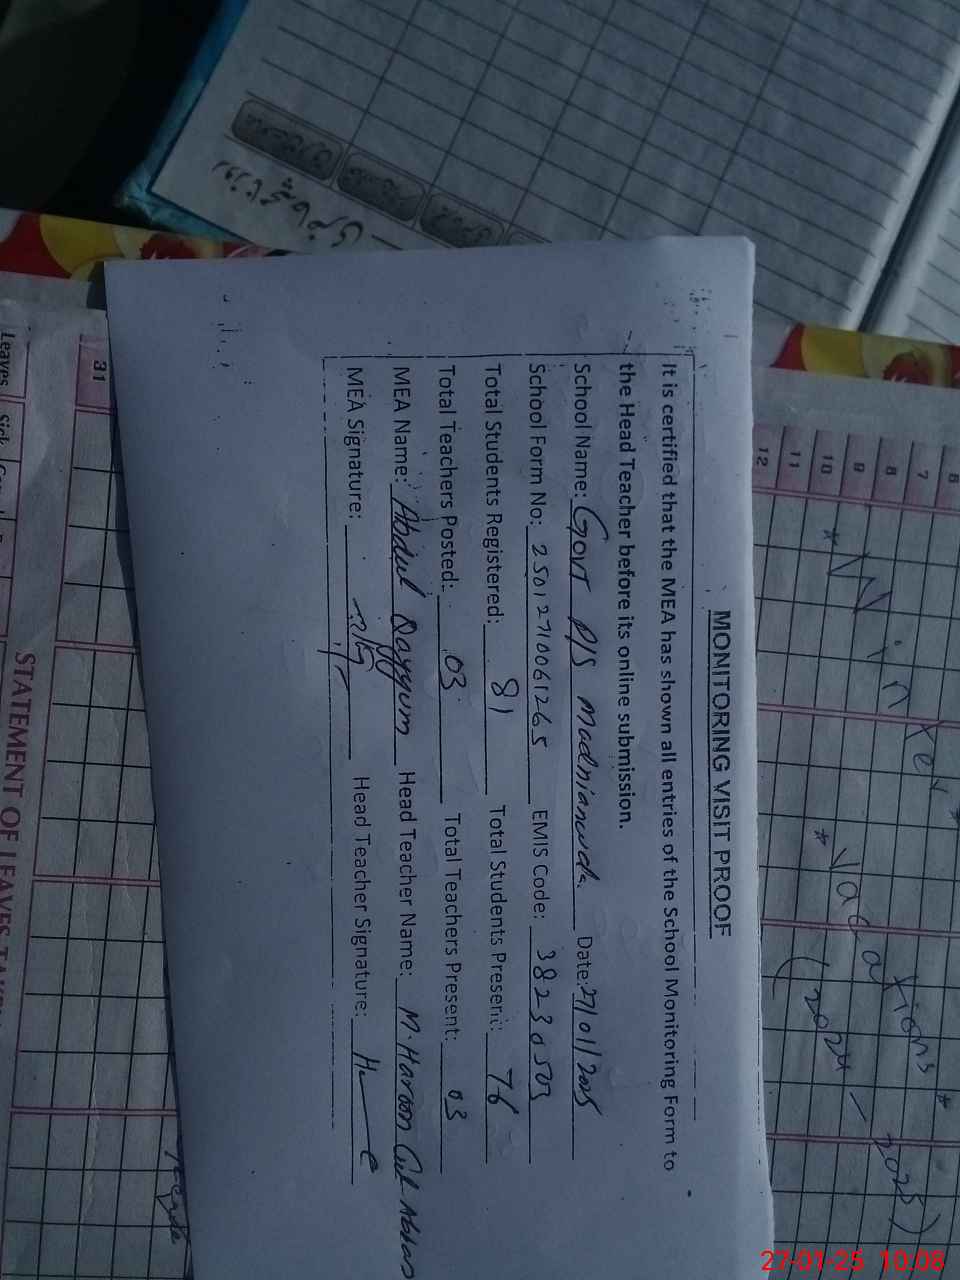 MONITORING VISIT PROOF
It is certified that the MEA has shown all entries of the School Monitoring Form to
the Head Teacher before its online submission.
School Name: Govt P/S Madnianwala Date: 27/01/2025
School Form No: 25012710061265 EMIS Code: 38230503
Total Students Registered: 81 Total Students Present: 76
Total Teachers Posted: 03 Total Teachers Present: 03
MEA Name: Abdul Qayyum Head Teacher Name: M. Haroon Gul Abbas
MEA Signature: Head Teacher Signature:
6
7
8
9
10
11
12
* Winter *
* Vacations *
(2024 - 2025)
31
Leaves Sick
STATEMENT OF LEAVES TAKEN
27-01-25 10:08